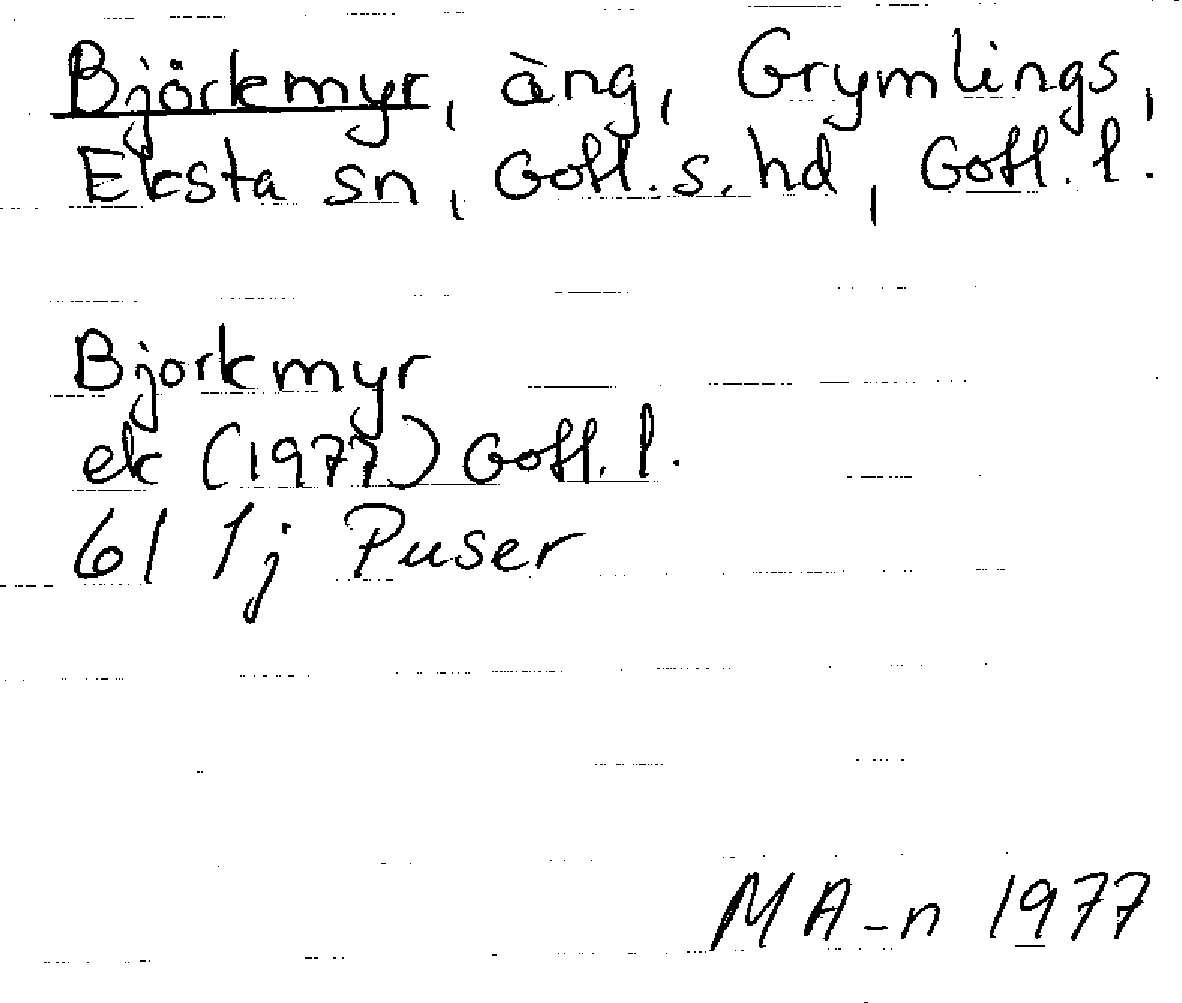 Björkmyr, äng, Grymlings,
Eksta sn, Gotl. s. hd, Gotl. l.
Bjorkmyr
ek (1977) Gotl. l.
6I 1j Puser
MA-n 1977